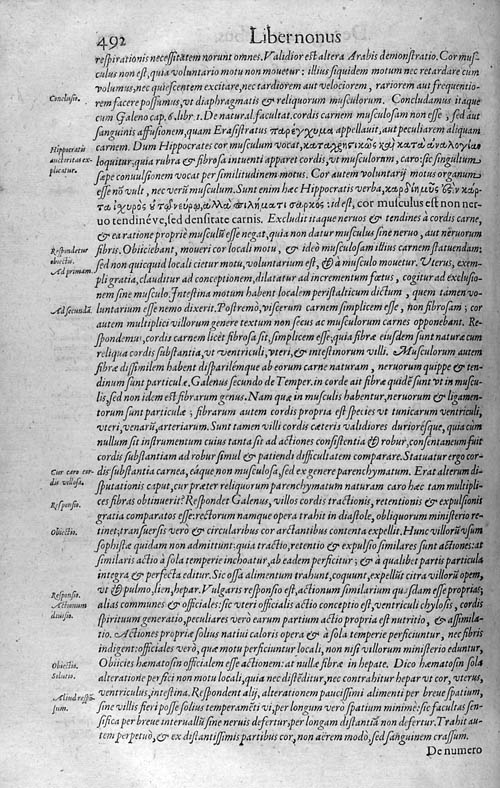 492 Liber nonus
respirationis necessitatem norunt omnes. Validior est altera Arabis demonstratio. Cor mus-
culus non est, quia voluntario motu non mouetur: illius siquidem motum nec retardare cum
volumus, nec quiescentem excitare, nec tardiorem aut velociorem, rariorem aut frequentio-
Conclusio.
rem facere possumus, vt diaphragmatis & reliquorum musculorum. Concludamus itaque
cum Galeno cap. 6. libr. 1. De natural. facultat. cordis carnem musculosam non esse; sed aut
sanguinis affusionem, quam Erasistratus παρέγχυμα appellauit, aut peculiarem aliquam
Hippocratis
authoritas ex-
plicatur.
carnem. Dum Hippocrates cor musculum vocat, καταχρηστικῶς καὶ κατὰ ἀναλογίαν
loquitur, quia rubra & fibrosa intuenti apparet cordis, vt musculorum, caro: sic singultum
sæpe conuulsionem vocat per similitudinem motus. Cor autem voluntarij motus organum
esse nō vult, nec verū musculum. Sunt enim hæc Hippocratis verba,
id est, cor musculus est non ner-
uo tendinéve, sed densitate carnis. Excludit itaque neruos & tendines à cordis carne,
& ea ratione propriè musculū esse negat, quia non datur musculus sine neruo, aut neruorum
Respondetur
obiectio.
fibris. Obiiciebant, moueri cor locali motu, & ideò musculosam illius carnem statuendam:
Ad primam.
sed non quicquid locali cietur motu, voluntarium est, & à musculo mouetur. Vterus, exem-
pli gratia, clauditur ad conceptionem, dilatatur ad incrementum fœtus, cogitur ad exclusio-
nem sine musculo. Intestina motum habent localem peristalticum dictum, quem tamen vo-
Ad secundā.
luntarium esse nemo dixerit. Postremò, viscerum carnem simplicem esse, non fibrosam; cor
autem multiplici villorum genere textum non secus ac musculorum carnes opponebant. Re-
spondemus, cordis carnem licèt fibrosa sit, simplicem esse, quia fibræ eiusdem sunt naturæ cum
reliqua cordis substantia, vt ventriculi, vteri, & intestinorum villi. Musculorum autem
fibræ dissimilem habent disparilémque ab eorum carne naturam, neruorum quippe & ten-
dinum sunt particulæ. Galenus secundo de Temper. in corde ait fibræ quidē sunt vt in muscu-
lis, sed non idem est fibrarum genus. Nam quæ in musculis habentur, neruorum & ligamen-
torum sunt particulæ; fibrarum autem cordis propria est species vt tunicarum ventriculi,
vteri, venarū, arteriarum. Sunt tamen villi cordis cæteris validiores duriorésque, quia cùm
nullum sit instrumentum cuius tanta sit ad actiones consistentia & robur, consentaneum fuit
cordis substantiam ad robur simul & patiendi difficultatem comparare. Statuatur ergo cor-
Cur caro cor-
dis villosa.
dis substantia carnea, eáque non musculosa, sed ex genere parenchymatum. Erat alterum di-
sputationis caput, cur præter reliquorum parenchymatum naturam caro hæc tam multipli-
Responsio.
ces fibras obtinuerit? Respondet Galenus, villos cordis tractionis, retentionis & expulsionis
gratia comparatos esse: rectorum namque opera trahit in diastole, obliquorum ministerio re-
Obiectio.
tinet, transuersis verò & circularibus cor arctantibus contenta expellit. Hunc villorū vsum
sophistæ quidam non admittunt: quia tractio, retentio & expulsio similares sunt actiones: at
similaris actio à sola temperie inchoatur, ab eadem perficitur; & à qualibet partis particula
integra & perfecta editur. Sic ossa alimentum trahunt, coquunt, expellūt citra villorū opem,
Responsio.
Actionum
diuisio.
vt & pulmo, lien, hepar. Vulgaris responsio est, actionum similarium quasdam esse proprias;
alias communes & officiales: sic vteri officialis actio conceptio est, ventriculi chylosis, cordis
spirituum generatio, peculiares verò earum partium actio propria est nutritio, & assimila-
tio. Actiones propriæ solius natiui caloris opera & à sola temperie perficiuntur, nec fibris
indigent: officiales verò, quæ motu perficiuntur locali, non nisi villorum ministerio eduntur,
Obiectio.
Solutio.
Obiicies hæmatosin officialem esse actionem: at nullæ fibræ in hepate. Dico hæmatosin sola
alteratione perfici non motu locali, quia nec distēditur, nec contrahitur hepar vt cor, vterus,
Aliud respō-
sum.
ventriculus, intestina. Respondent alij, alterationem paucissimi alimenti per breue spatium,
sine villis fieri posse solius temperamēti vi, per longum verò spatium minimè: sic facultas sen-
sifica per breue interuallū sine neruis defertur, per longam distantiā non defertur. Trahit au-
tem perpetuò, & ex distantissimis partibus cor, non aërem modò, sed sanguinem crassum.
De numero